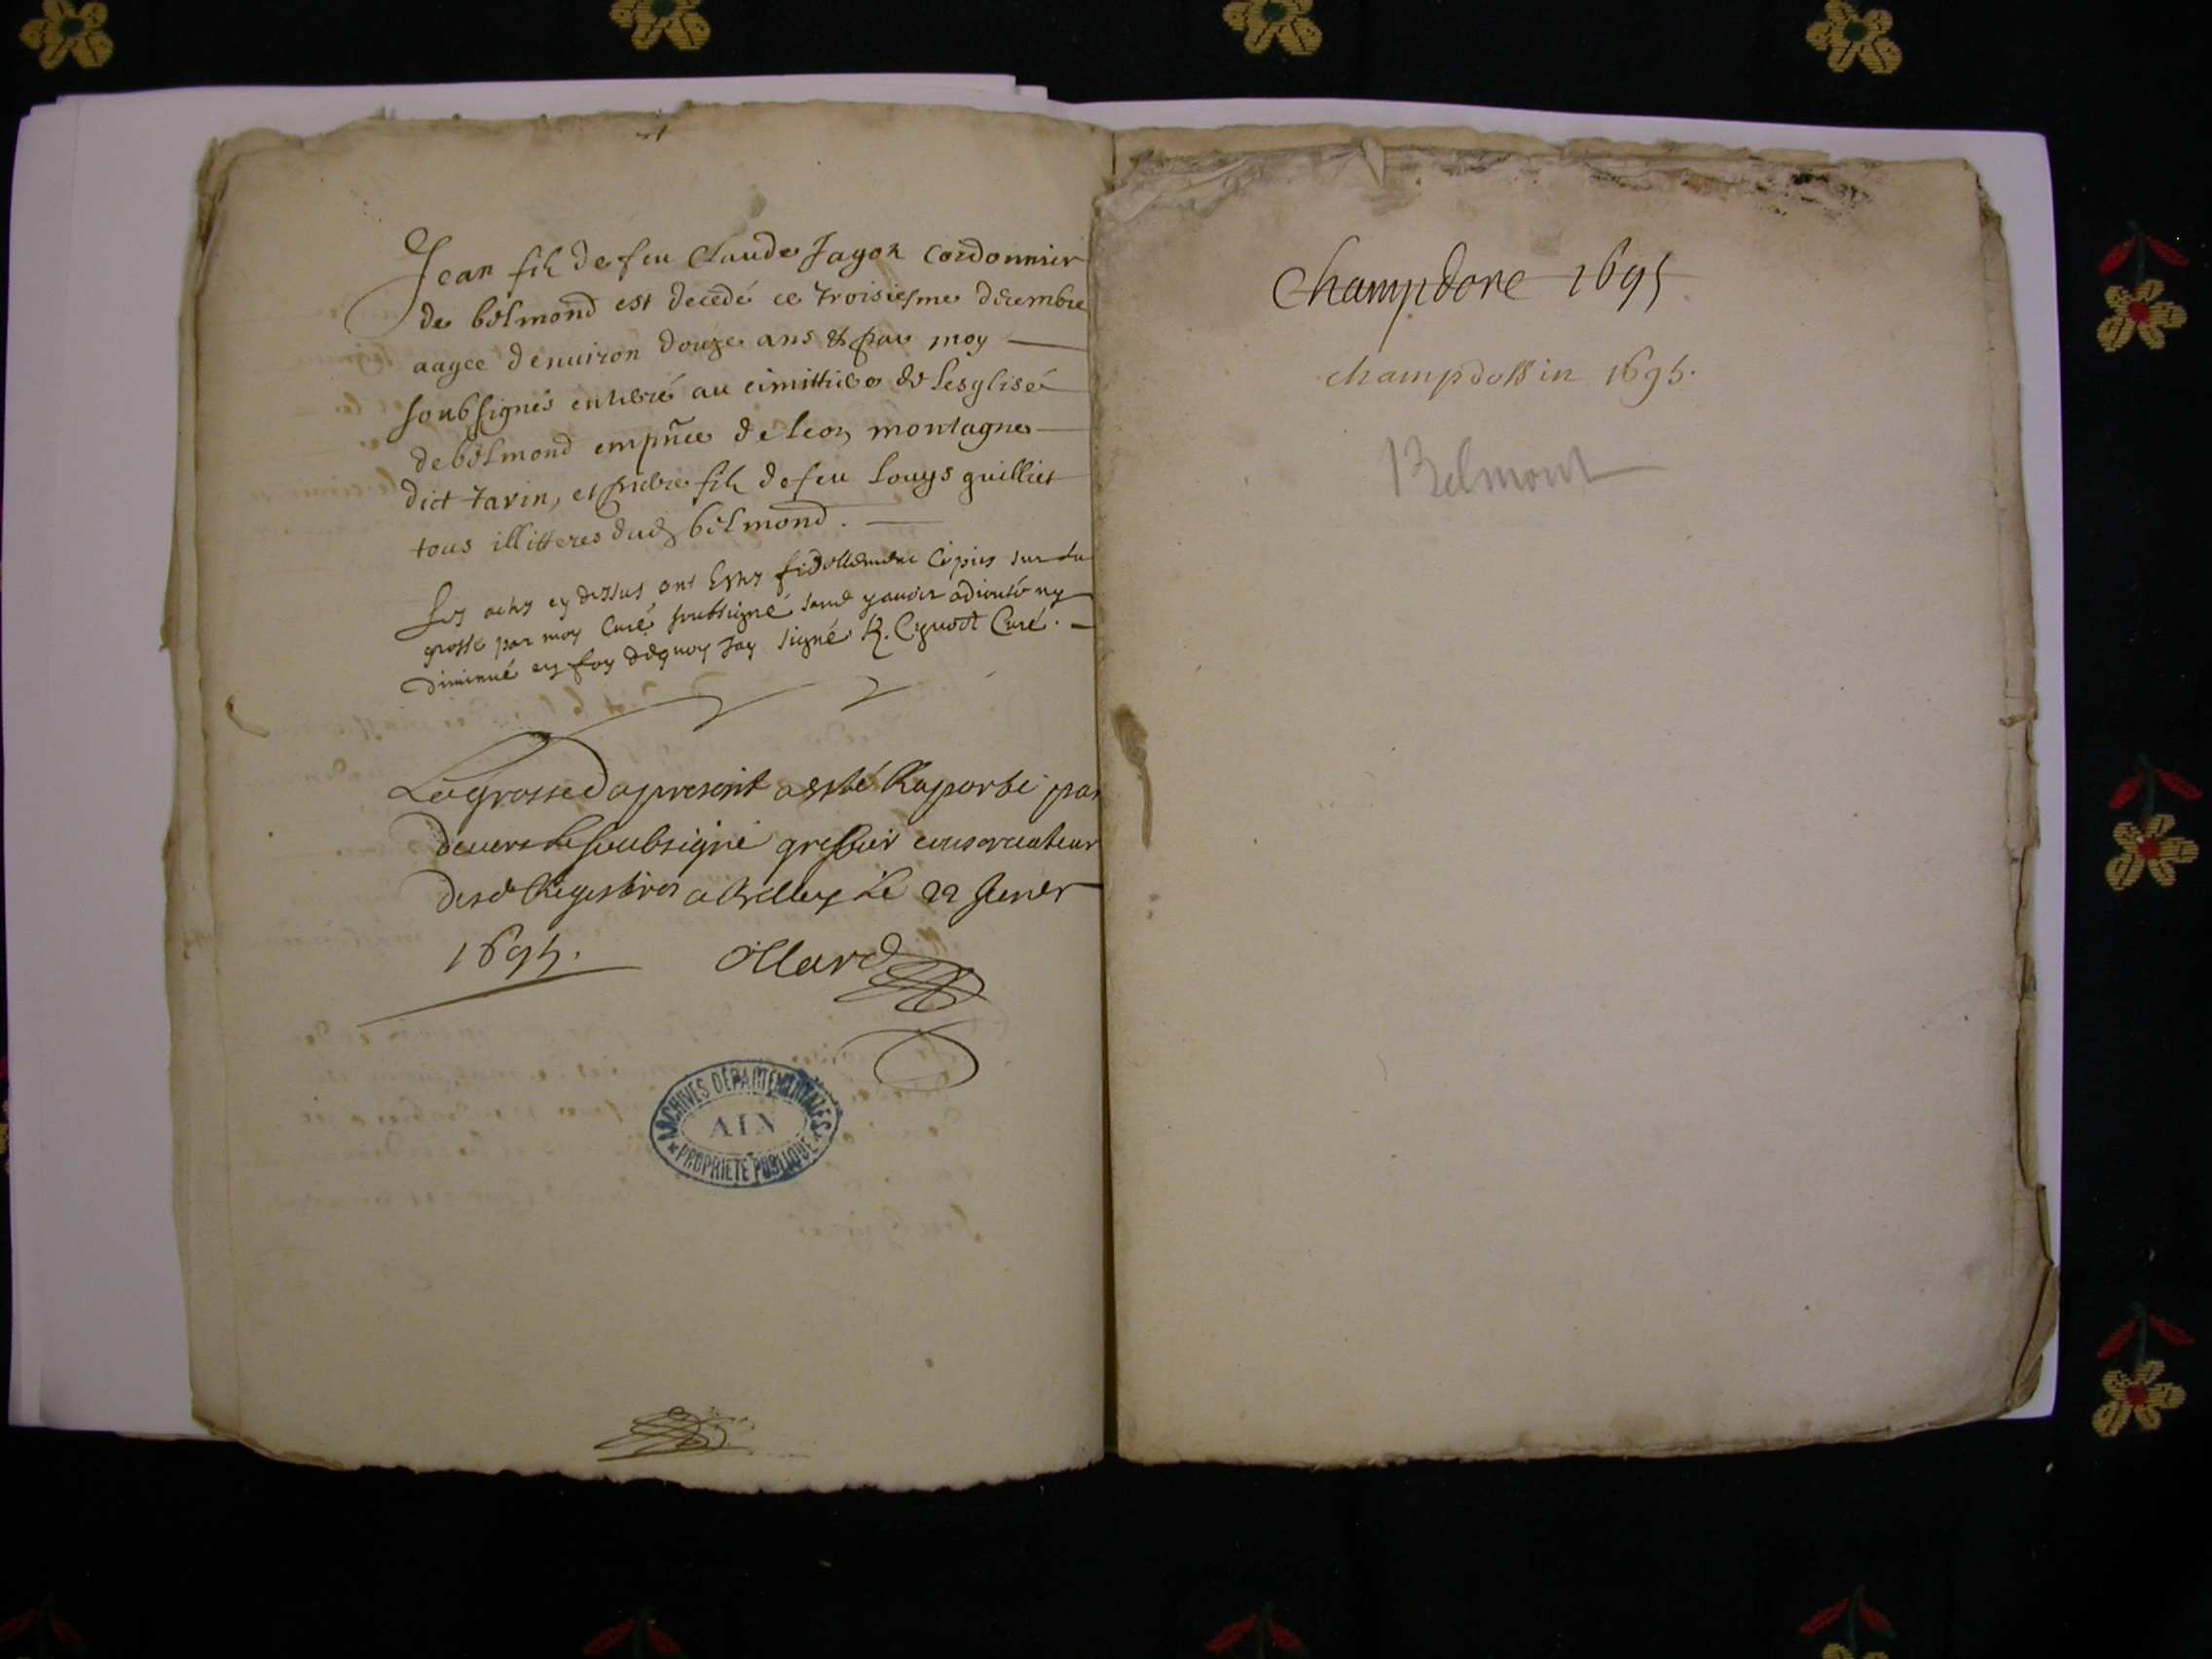 Jean fils de feu Claude Jagot cordonnier
de belmond est decedé ce troisiesme decembre
aagee denuiron douze ans & par moy
soubsignés enterré au cimittiere de lesglise
de belmond empñce de leon montagne
dict tarin, et pierre fils de feu Louys guilliet
tous illitteres dud belmond.
Les actes cy dessus ont estes fidellement copies sur la
grosse par moy Curé soubsigné sans y auoir adiouté ny
diminué en foy dequoy Jay signé Curé.
La grosse du present a esté Raporté par
deuers le soubsigné greffier conseruateur
desd Registres a belley le 22 Janer
1695. Ollard
ARCHIVES DÉPARTEMENTALES
AIN
PROPRIÉTÉ PUBLIQUE
Champdore 1695
champdossin 1695.
Belmont